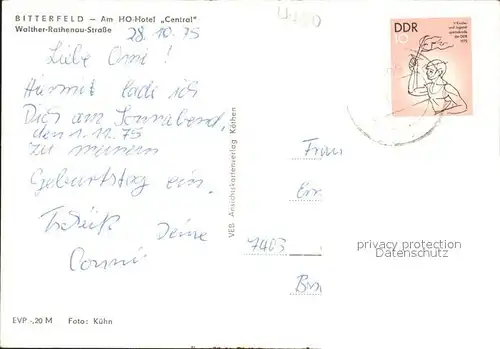 BITTERFELD – Am HO-Hotel „Central"
Walther-Rathenau-Straße
28.10.75
Liebe Omi!
Hiermit lade ich
Dich am Sonnabend,
den 1.11.75
zu meinem
Geburtstag ein.
Tschüß Deine
Conni
EVP -,20 M Foto: Kühn
VEB Ansichtskartenverlag Köthen
DDR
10
V. Kinder-
und Jugend-
spartakiade
der DDR
1975
Frau
7403
privacy protection
Datenschutz